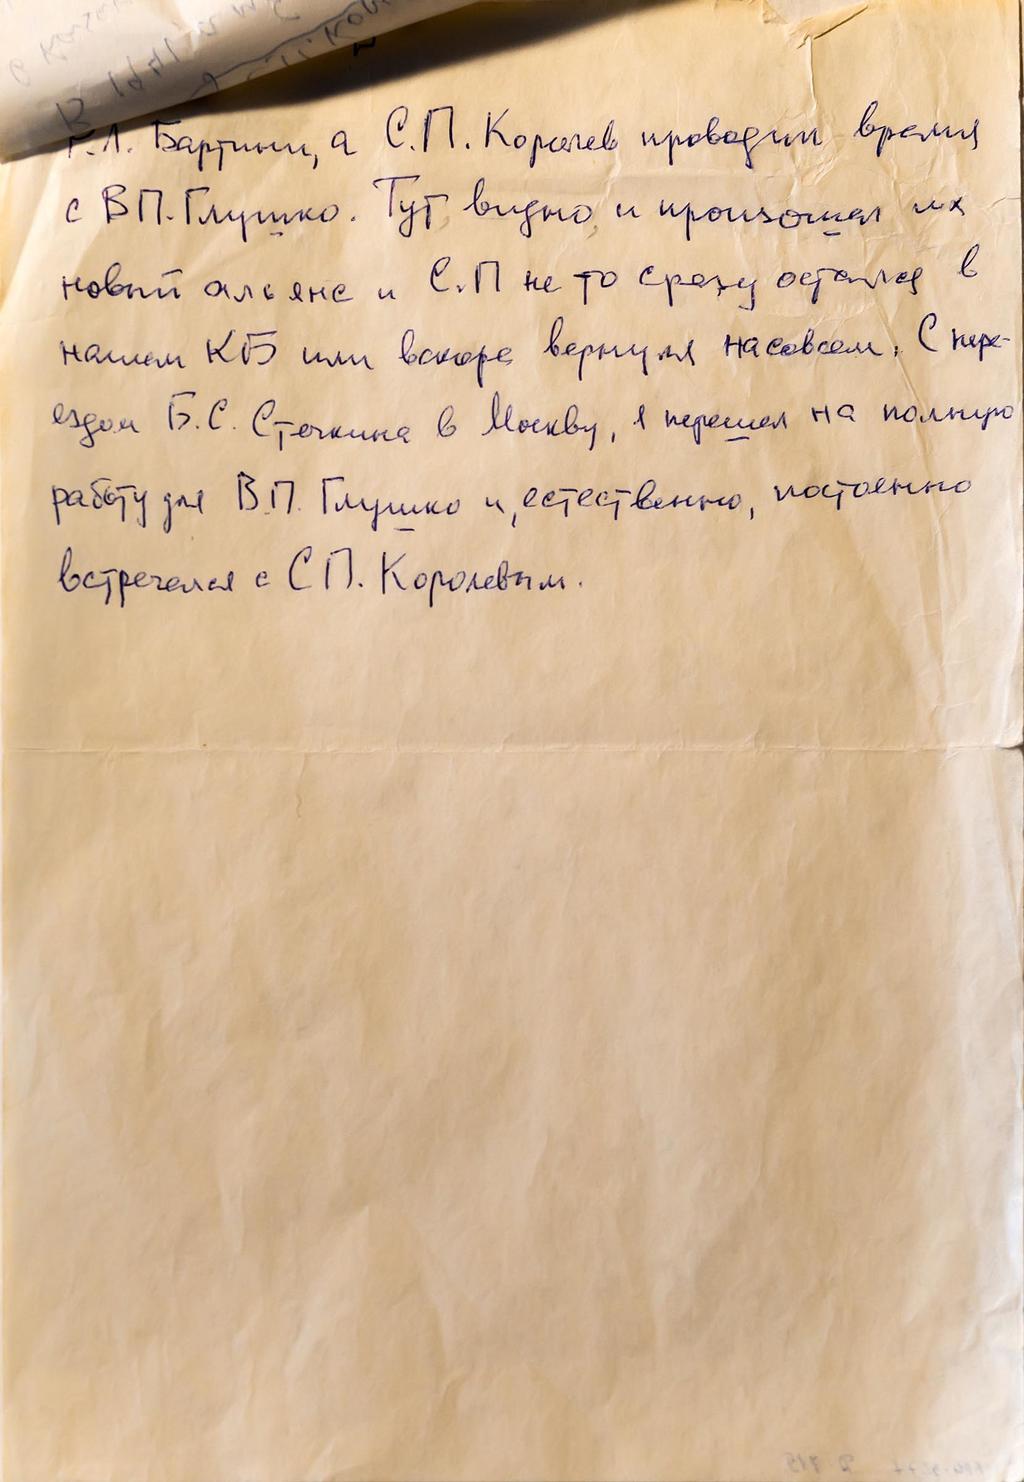 Р.Л. Бартини, а С.П. Королев проводил время
с В.П. Глушко. Тут, видно, и произошел их
новый альянс и С.П не то сразу остался в
нашем КБ или вскоре вернулся насовсем. С пере-
ездом Б.С. Стечкина в Москву, я перешел на полную
работу для В.П. Глушко и, естественно, постоенно
встречался с С П. Королевым.